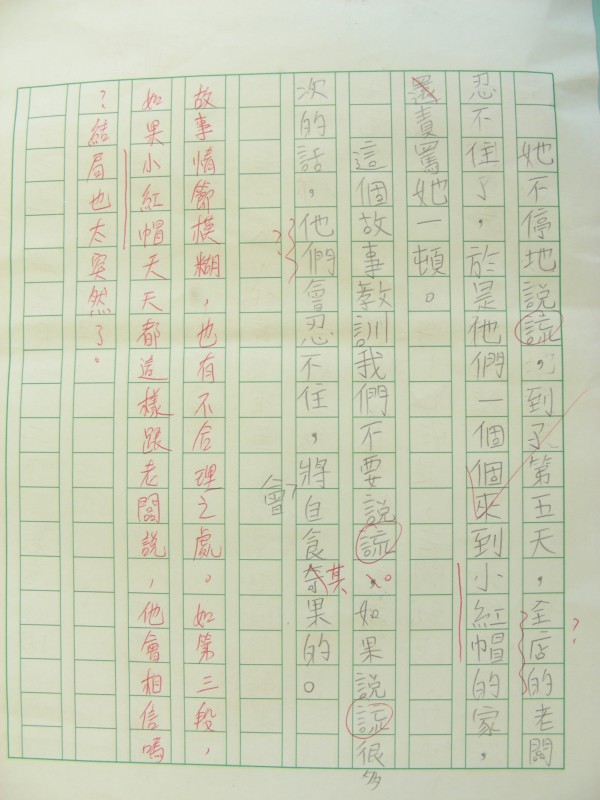 她不停地說謊,到了第五天,全店的老闆
忍不住了,於是他們一個個來到小紅帽的家,
還責罵她一頓。
這個故事教訓我們不要說謊。如果說謊很
次的話,他們會忍不住,將會自食其果的。
故事情節模糊,也有不合理之處。如第三段,
如果小紅帽天天都這樣跟老闆說,他會相信嗎
?結局也太突然了。